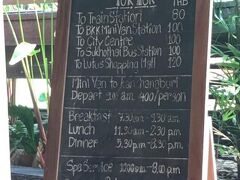 TUK TUK THB
To Train Station 80
To BKK Mini Van Station 100
To City Centre 100
To Sukhothai Bus Station 100
To Lotus Shopping Mall 120
Mini Van to Kanchanaburi
Depart 400/person
Breakfast 7.30 am - 9.30 am.
Lunch 11.30 am - 2.30 pm.
Dinner 5.30 pm - 8.30 pm.
Spa Service